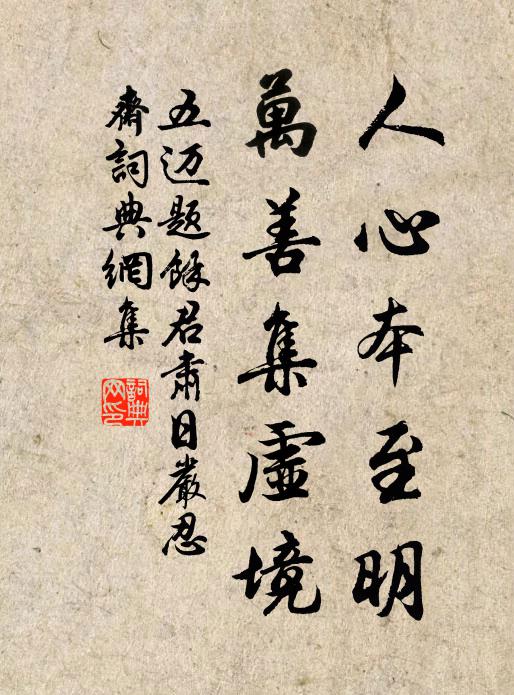 人心本至明
萬善集虛境
五迈题餘君肅日嚴忍
齋詞典網集
詞典网印